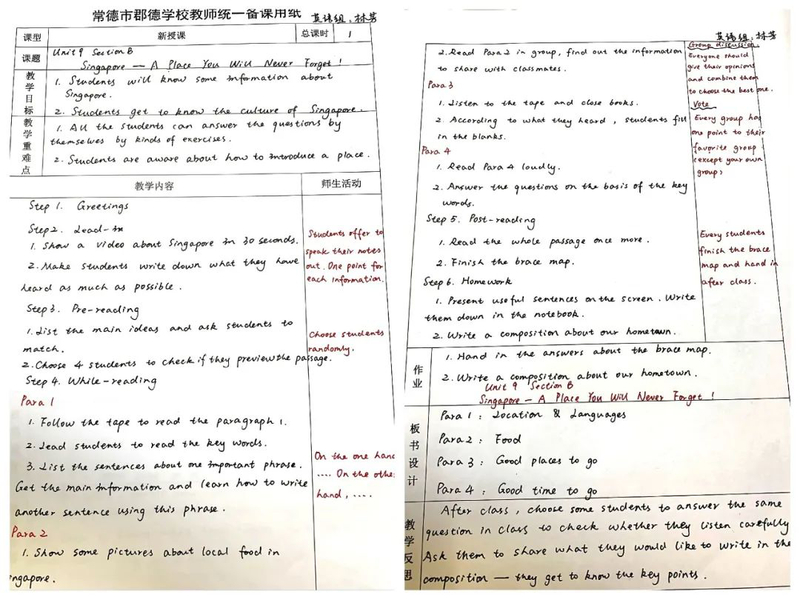 常德市郡德学校教师统一备课用纸
英语组:林芳
课型 新授课 总课时 1
课题 Unit 9 Section B
Singapore — A Place You Will Never Forget!
教学目标 1. Students will know some information about
Singapore.
2. Students get to know the culture of Singapore.
教学重难点 1. All the students can answer the questions by
themselves by kinds of exercises.
2. Students are aware about how to introduce a place.
教学内容 师生活动
Step 1. Greetings
Step 2. Lead-in
1. Show a video about Singapore in 30 seconds.
2. Make students write down what they have
heard as much as possible.
Students offer to
speak their notes
out. One point for
each information.
Step 3. Pre-reading
1. List the main ideas and ask students to
match.
2. Choose 4 students to check if they preview the passage.
Choose students
randomly.
Step 4. While-reading
Para 1
1. Follow the tape to read the paragraph 1.
2. Lead students to read the key words.
3. List the sentences about one important phrase.
Get the main information and learn how to write
another sentence using this phrase.
On the one hand
.... On the othe
hand, ....
Para 2
1. Show some pictures about local food in
ingapore.
英语组:林芳
2. Read Para 2 in group, find out the information
to share with classmates.
Group discussion
Everyone should
give their opinions
and combine them
to choose the best one.
Para 3
1. Listen to the tape and close books.
2. According to what they heard, students fill
in the blanks.
Vote
Every group has
one point to their
favorite group
(except your own
group)
Para 4
1. Read Para 4 loudly.
2. Answer the questions on the basis of the key
words.
Step 5. Post-reading
1. Read the whole passage once more.
2. Finish the brace map.
Every students
finish the brace
map and hand in
after class.
Step 6. Homework
1. Present useful sentences on the screen. Write
them down in the notebook.
2. Write a composition about our hometown.
作业 1. Hand in the answers about the brace map.
2. Write a composition about our hometown.
板书设计 Unit 9 Section B
Singapore — A Place You Will Never Forget!
Para 1: Location & Languages
Para 2: Food
Para 3: Good places to go
Para 4: Good time to go
教学反思 After class, choose some students to answer the same
question in class to check whether they listen carefully
Ask them to share what they would like to write in the
composition — they get to know the key points.